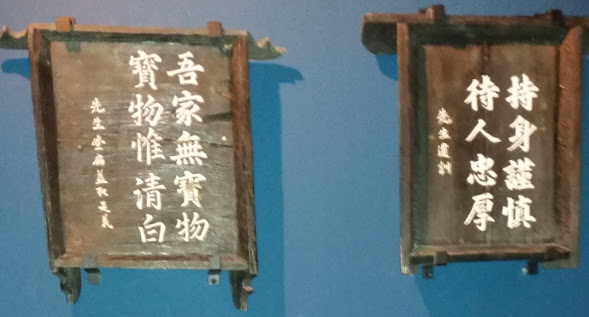 吾家無寶物
寶物惟清白
先生堂扁蓋取是義
持身謹慎
待人忠厚
先生遺訓